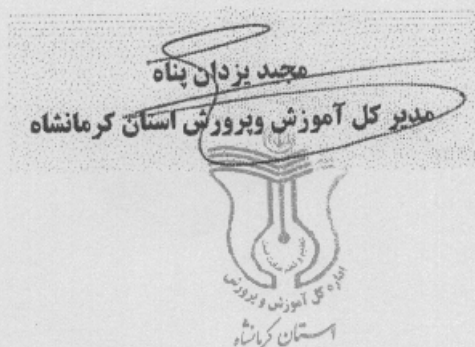 مجید یزدان پناه
مدیر کل آموزش وپرورش استان کرمانشاه
اداره کل آموزش و پرورش
استان کرمانشاه